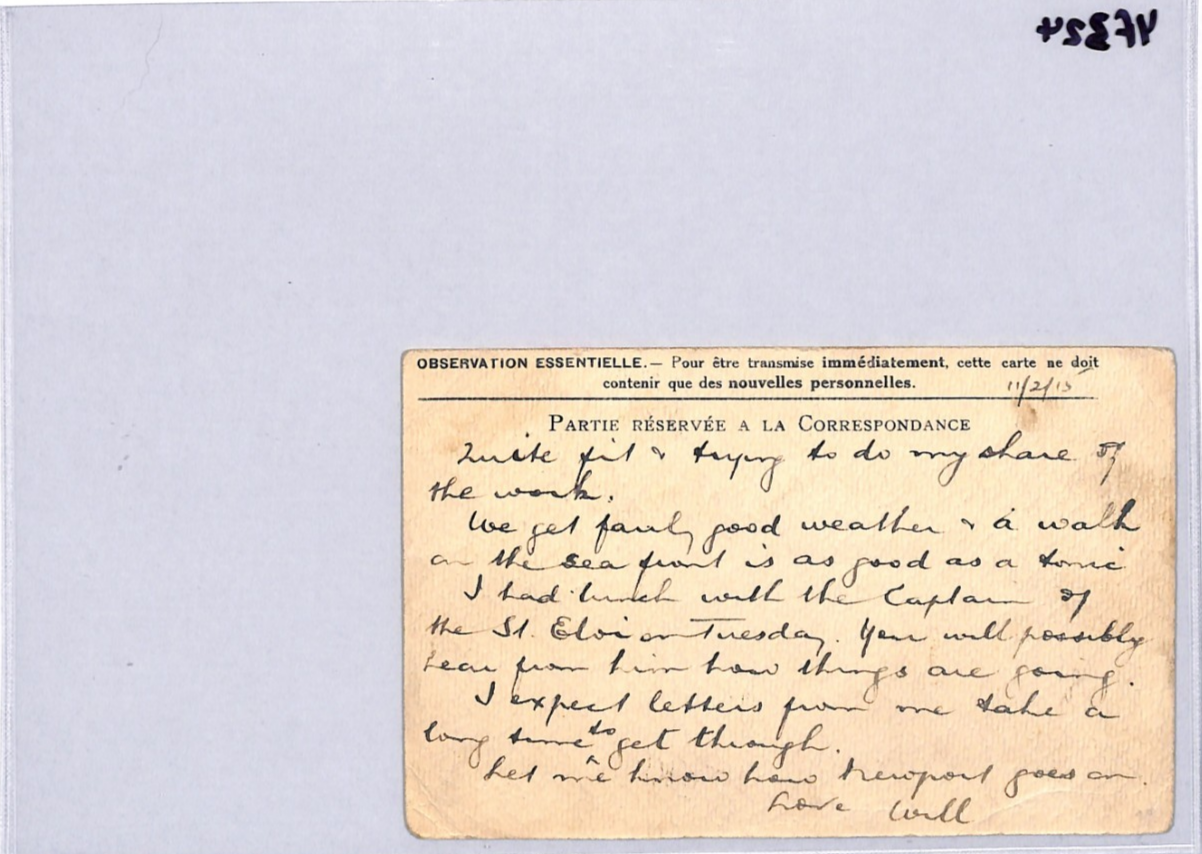 OBSERVATION ESSENTIELLE. — Pour être transmise immédiatement, cette carte ne doit
contenir que des nouvelles personnelles.
11/2/15
PARTIE RÉSERVÉE A LA CORRESPONDANCE
Quite fit & trying to do my share of
the work.
We get fairly good weather & a walk
on the sea front is as good as a tonic
I had lunch with the Captain of
the St. Eloi on Tuesday. You will possibly
hear from him how things are going.
I expect letters from me take a
long time to get through.
Let me know how Newport goes on.
Love Will